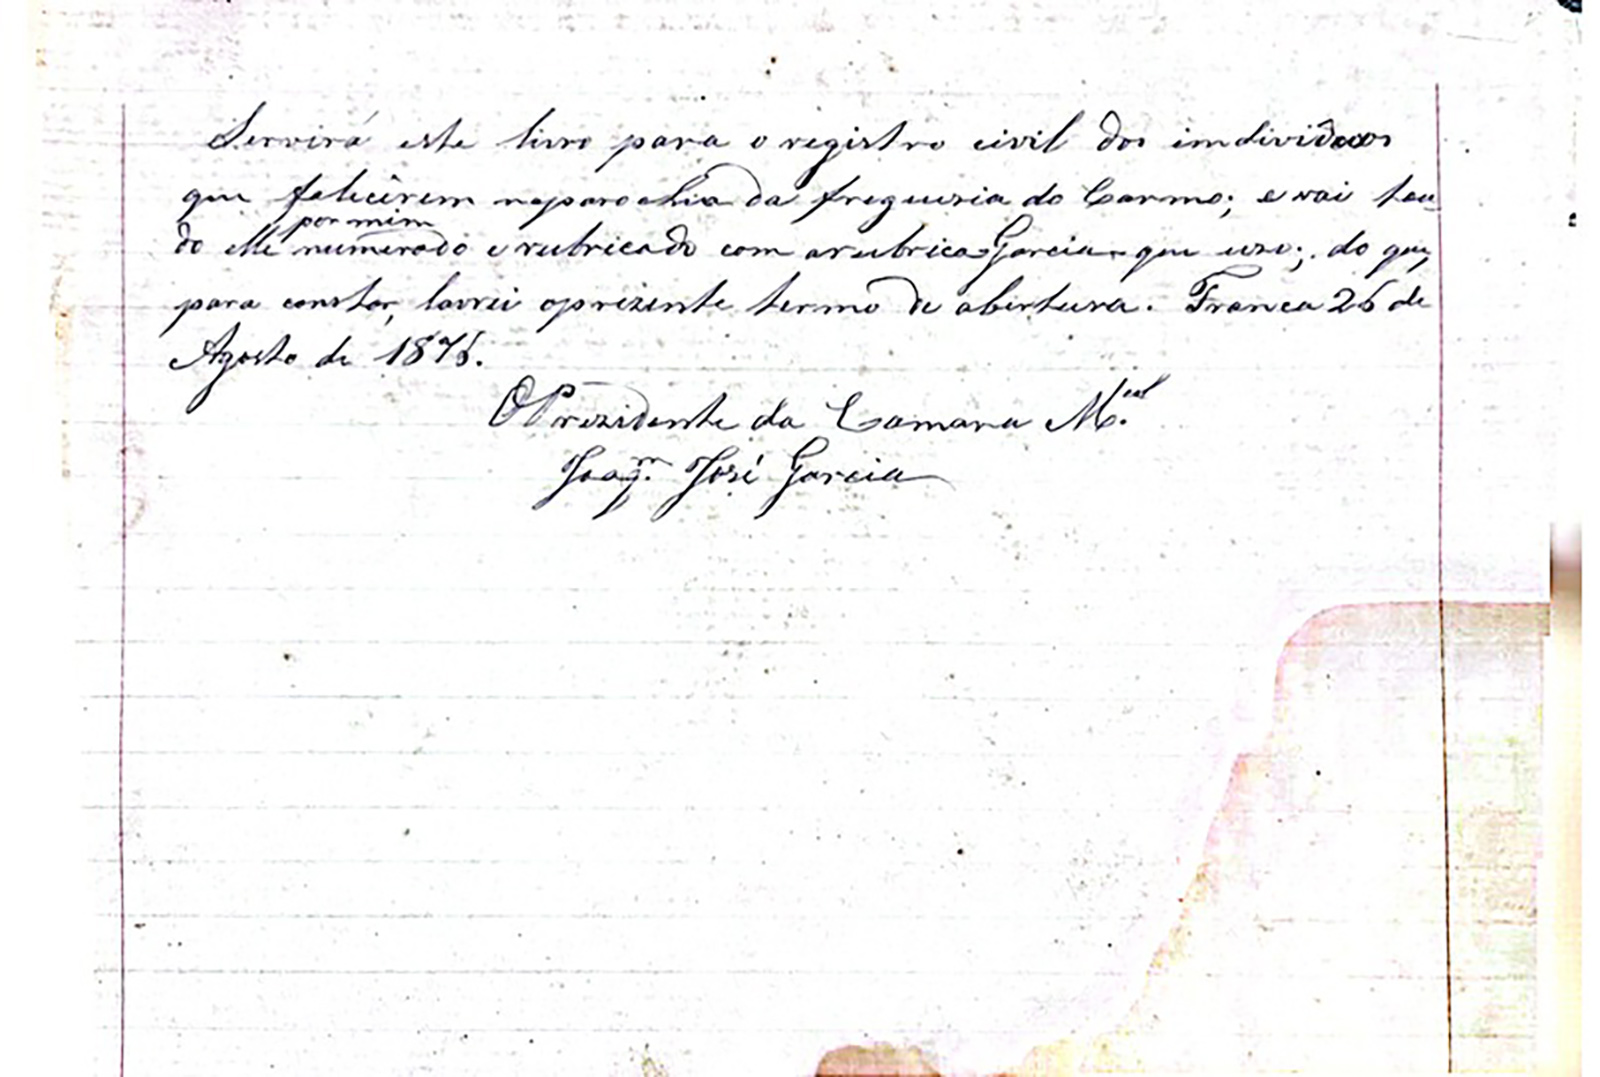 Servirá este livro para o registro civil dos individuos
que falicerem naparochia da freguezia do Carmo; e vai tou
por mim
do elle numerado e rubricado com arubrica Garcia que uso; do que,
para constar, lavrei oprezente termo de abertura. Franca 26 de
Agosto de 1876.
O Prezidente da Camara M.al
Joaq.m José Garcia